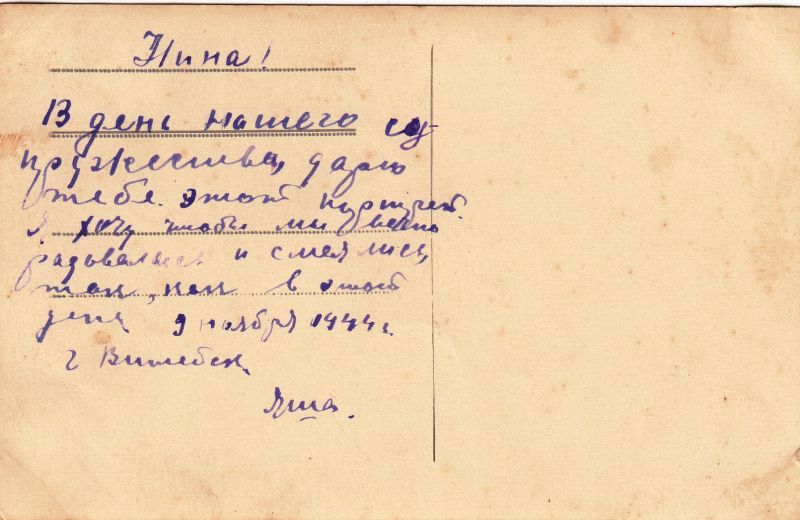 Нина!
В день нашего су
пружества, дарю
тебе этот портрет.
Я хочу чтобы мы вечно
радовались и смеялись,
так, как в этот
день 9 ноября 1944 г.
г Витебск.
Яша.